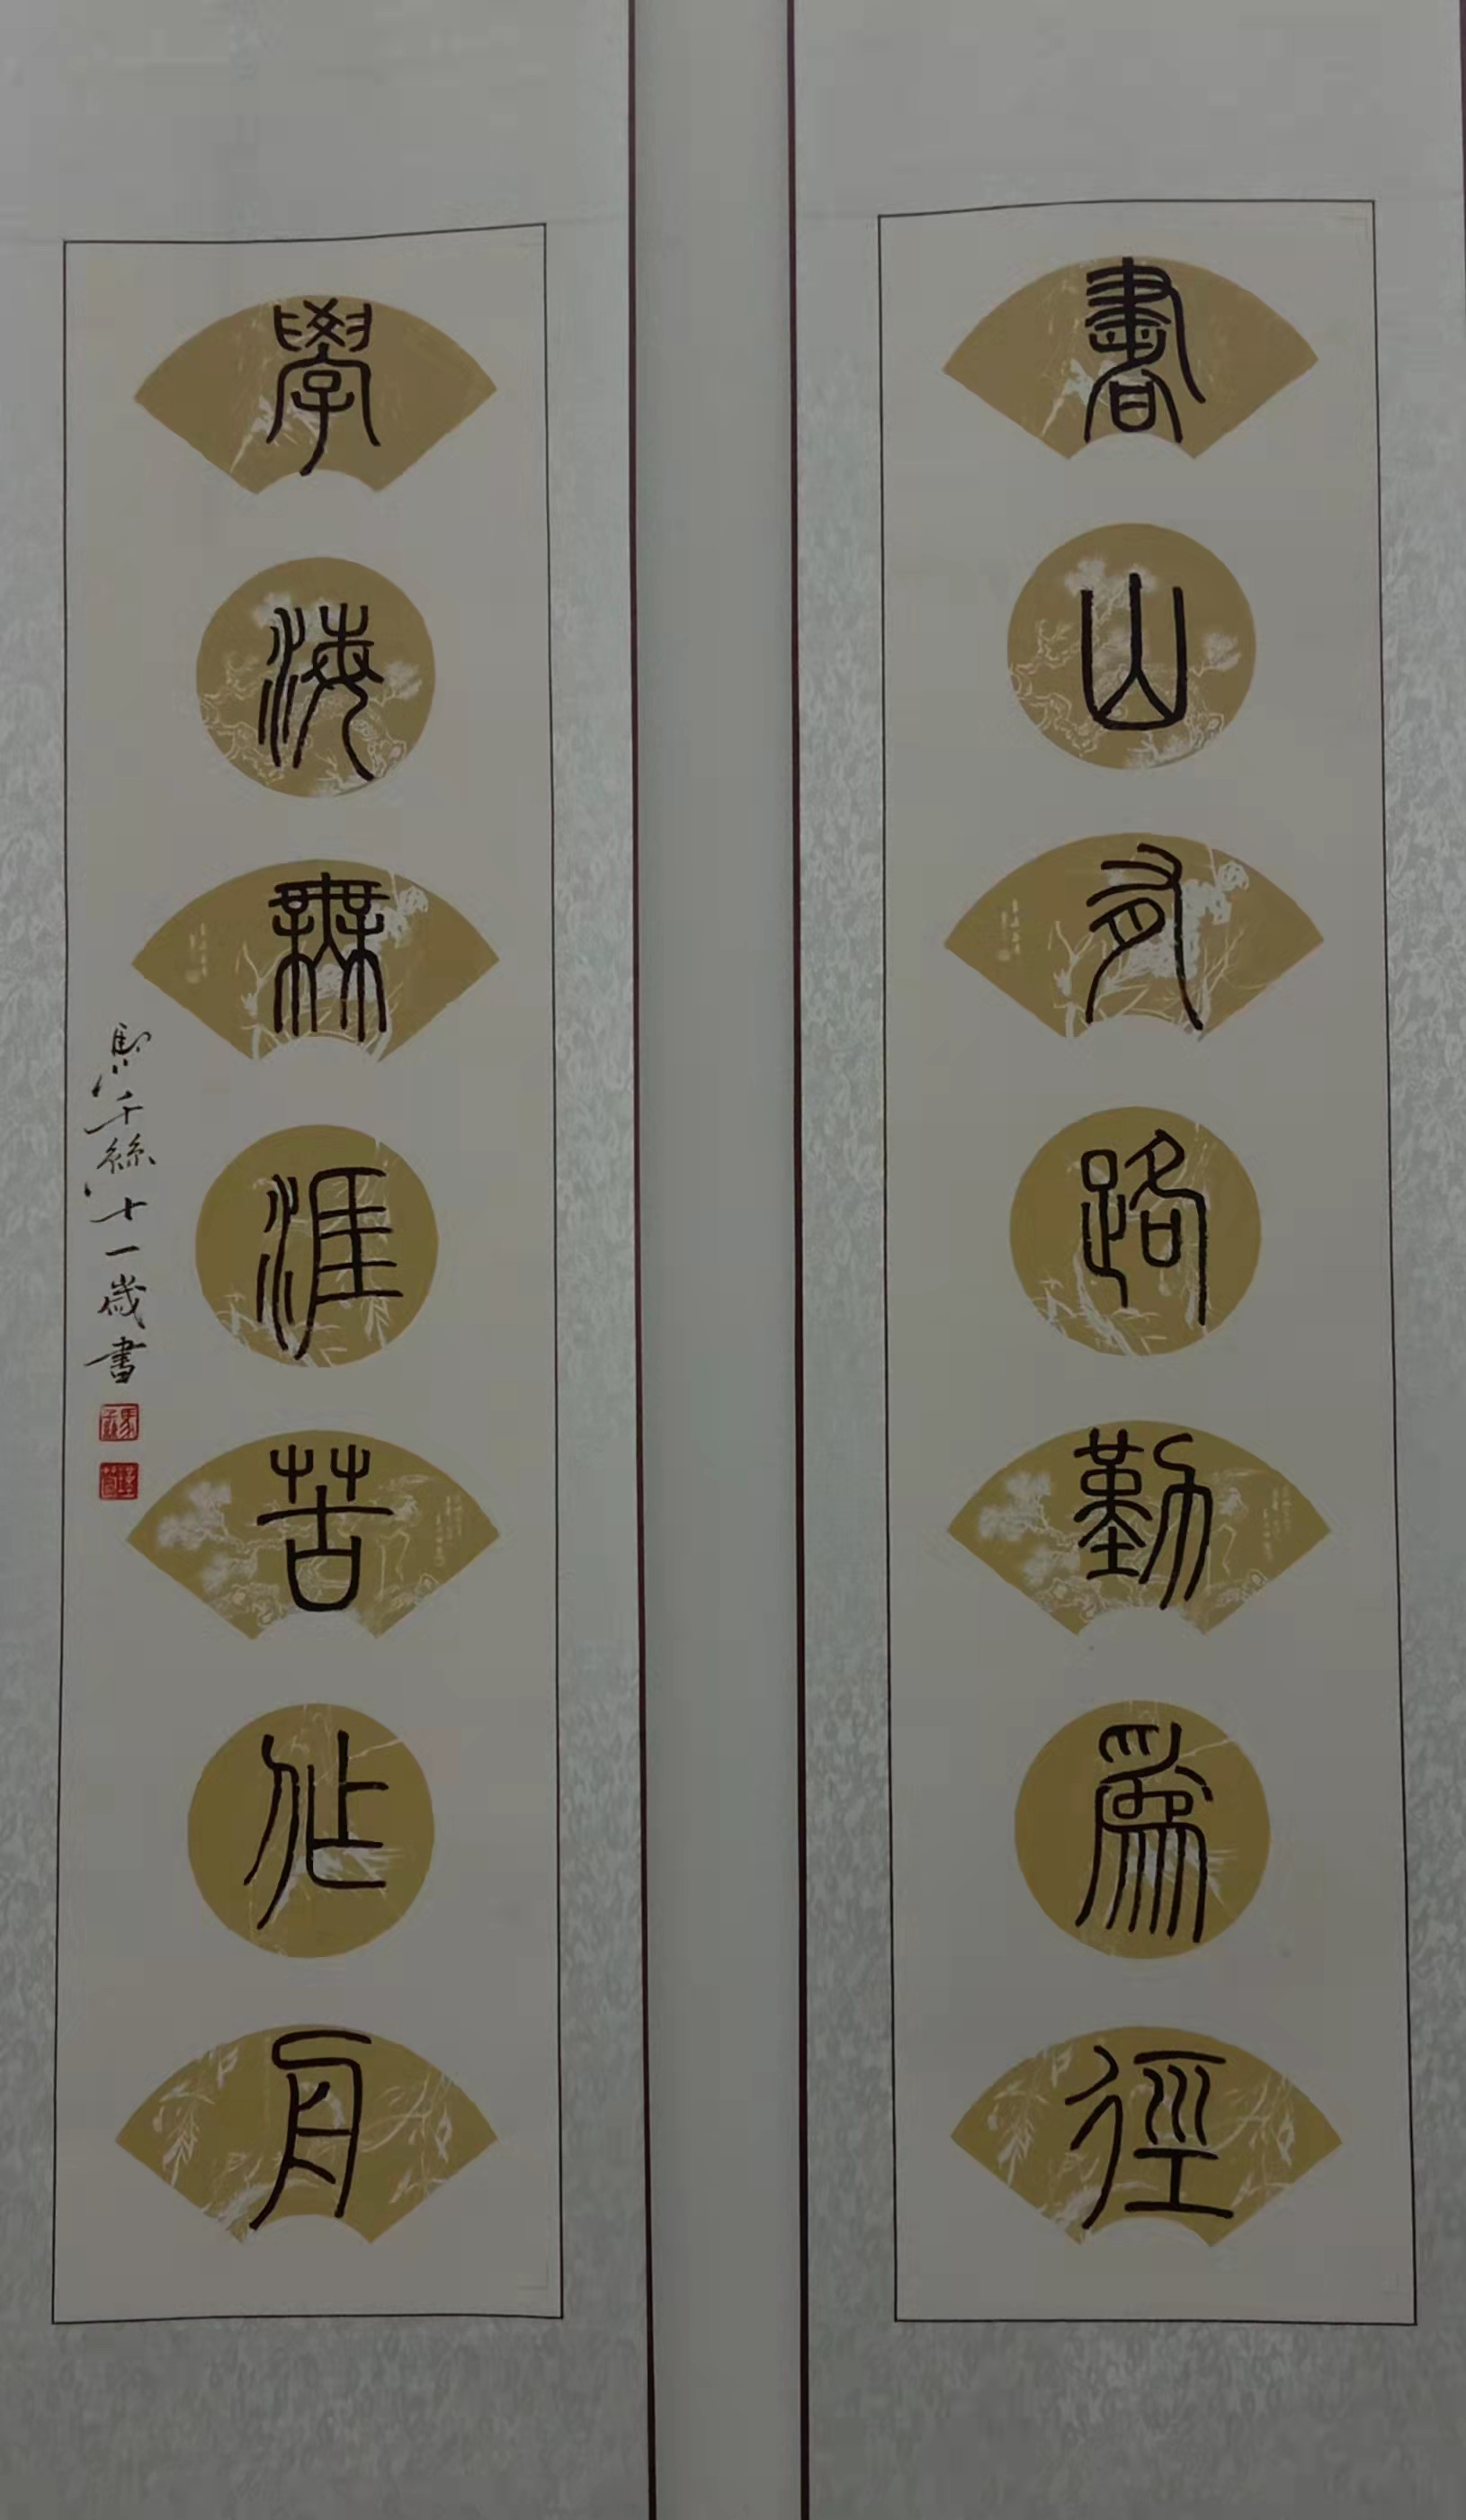 書山有路勤為徑
學海無涯苦作舟
馬千絲七十一歲書